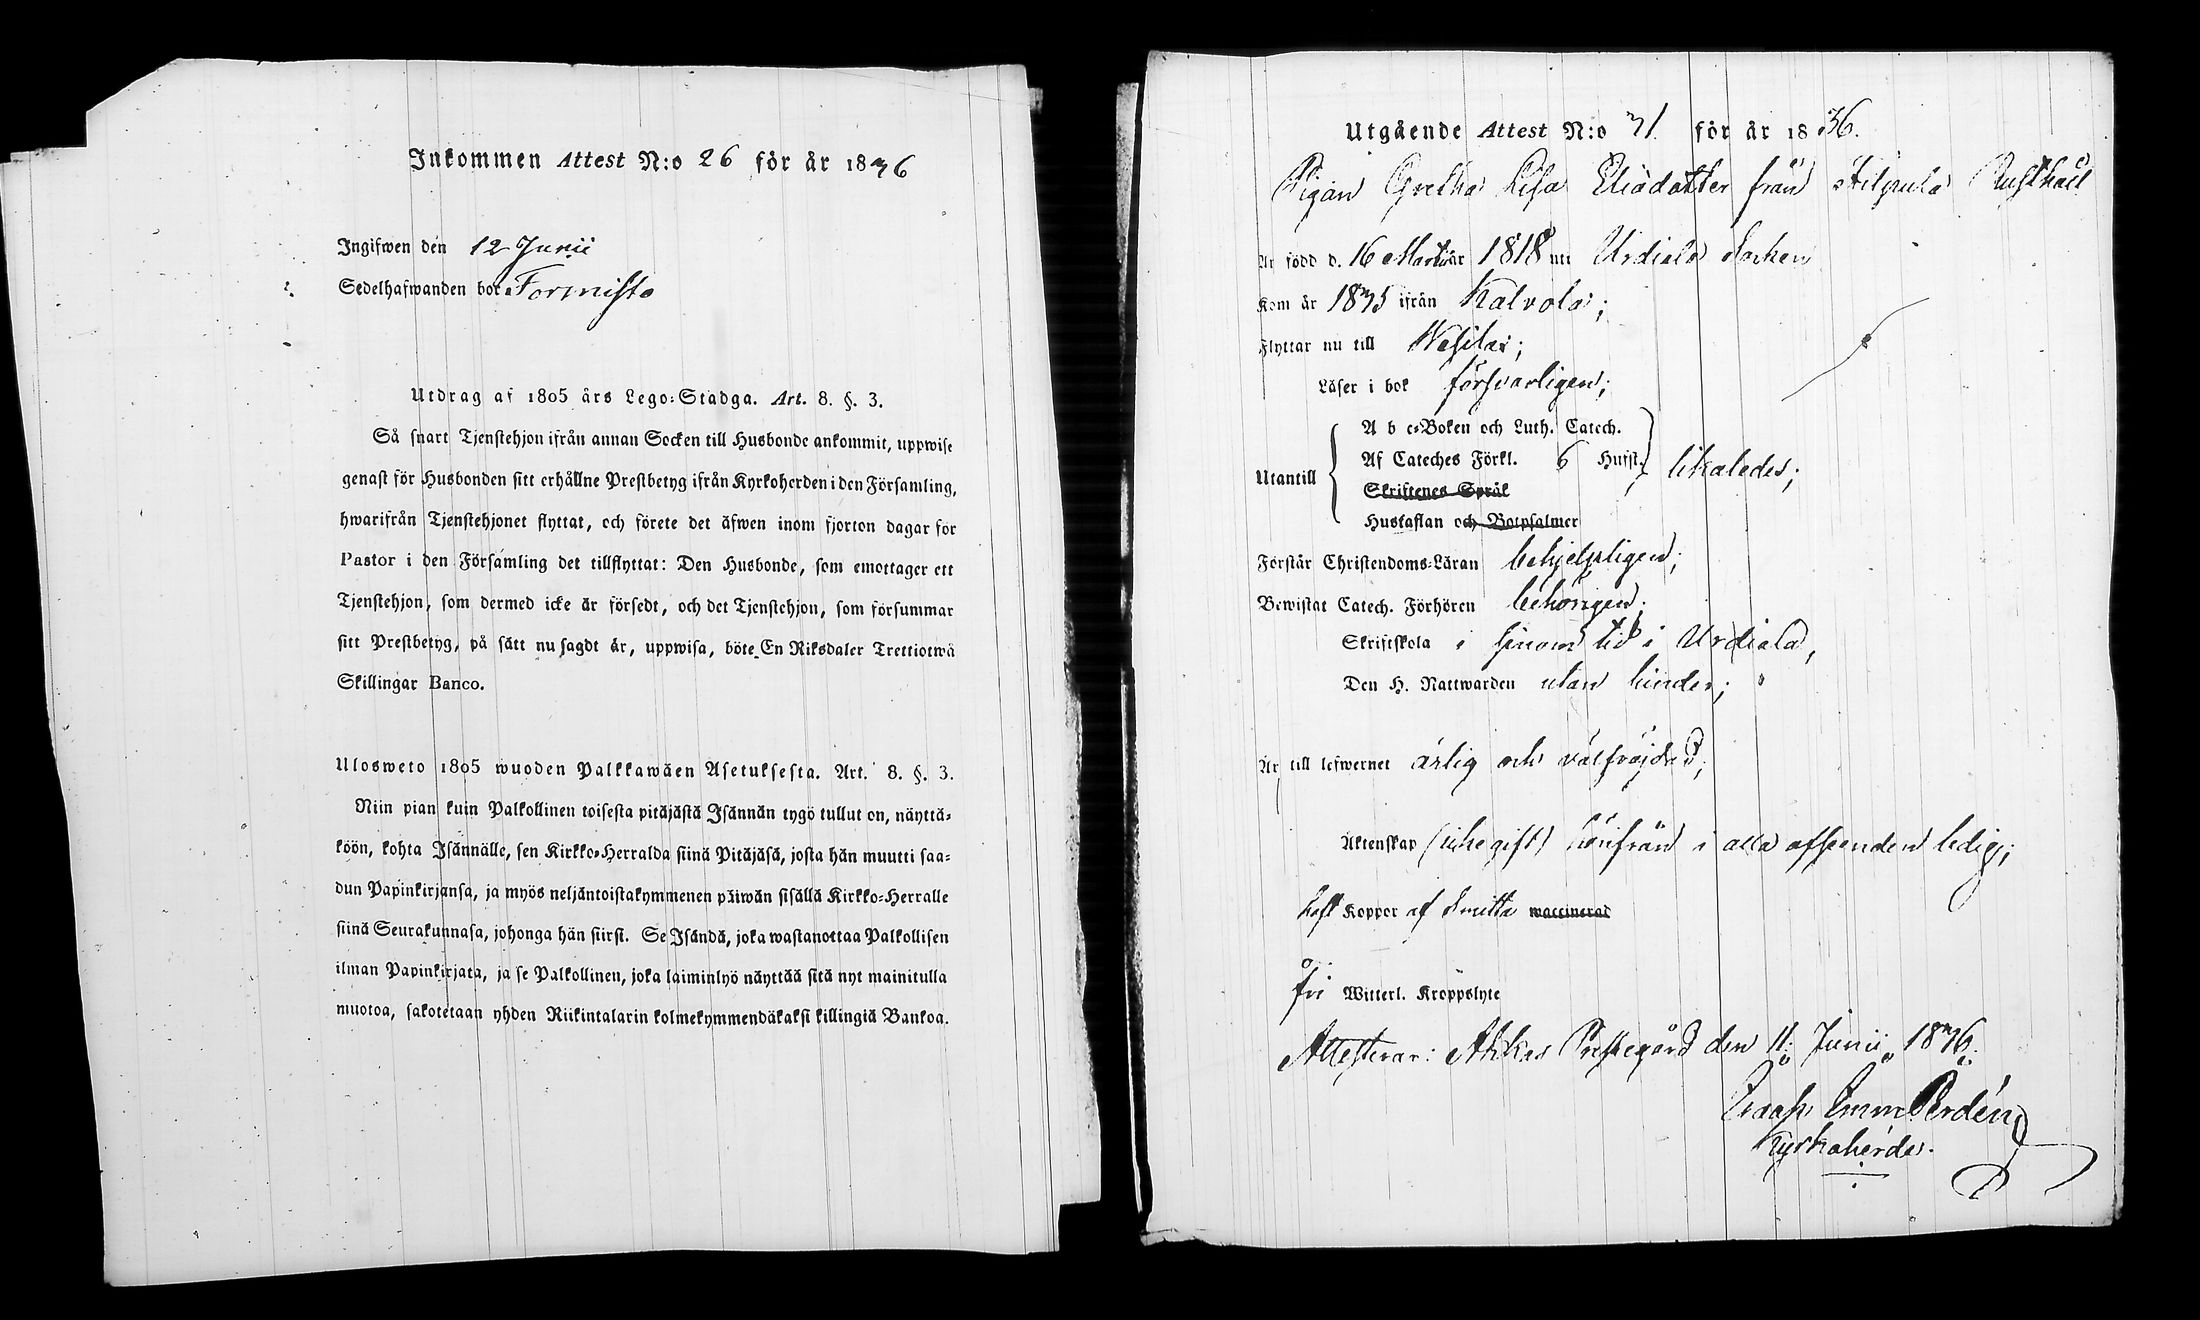 Inkommen Attest N:o 26 för år 1836
Ingifwen den 12 Junii
Sedelhafwanden bor Formisto
Utdrag af 1805 års Lego-Stadga. Art. 8. §. 3.
Så snart Tjenstehjon ifrån annan Socken till Husbonde ankommit, uppwise
genast för Husbonden sitt erhållne Prestbetyg ifrån Kyrkoherden i den Församling,
hwarifrån Tjenstehjonet flyttat, och förete det äfwen inom fjorton dagar för
Pastor i den Församling det tillflyttat: Den Husbonde, som emottager ett
Tjenstehjon, som dermed icke är försedt, och det Tjenstehjon, som försummar
sitt Prestbetyg, på sätt nu sagdt är, uppwisa, böte En Riksdaler Trettiotwå
Skillingar Banco.
Ulosweto 1805 wuoden Palkkawäen Asetuksesta. Art. 8. §. 3.
Niin pian kuin Palkollinen toisesta pitäjästä Isännän tygö tullut on, näyttä-
köön, kohta Isännälle, sen Kirkko-Herralda siinä Pitäjäsä, josta hän muutti saa-
dun Papinkirjansa, ja myös neljäntoistakymmenen päiwän sisällä Kirkko-Herralle
siinä Seurakunnasa, johonga hän siirsi. Se Isändä, joka wastanottaa Palkollisen
ilman Papinkirjata, ja se Palkollinen, joka laiminlyö näyttää sitä nyt mainitulla
muotoa, sakotetaan yhden Riikintalarin kolmekymmendäkaksi killingiä Bankoa.
Utgående Attest N:o 31. för år 1836.
Pigan Gretha Lisa Eliädotter från Rusthåll
Är född d. 16 Martii år 1818 uti Urdiala Socken
Kom år 1835 ifrån Kalvola;
Flyttar nu till Wesilax;
Läser i bok försvarligen;
A b c-Boken och Luth. Catech.
Af Cateches Förkl. 6 Hufst.
Utantill likaledes;
Skriftenes Språk
Hustaflan och Botpsalmer
Förstår Christendoms-Läran behjelpligen;
Bewistat Catech. Förhören behörigen;
Skriftskola i sinom tid i Urdiala,
Den H. Nattwarden utan hinder;
Är till lefwernet ärlig och välfräjdad;
Äktenskap (icke gift) härifrån i alla afseenden ledig;
haft Koppor af Smitta waccinerad
fri Witterl. Kroppslyte
Attesterar: Akkas Prestegård den 11 Junii 1836.
Emm Perdén
Kyrkoherde.